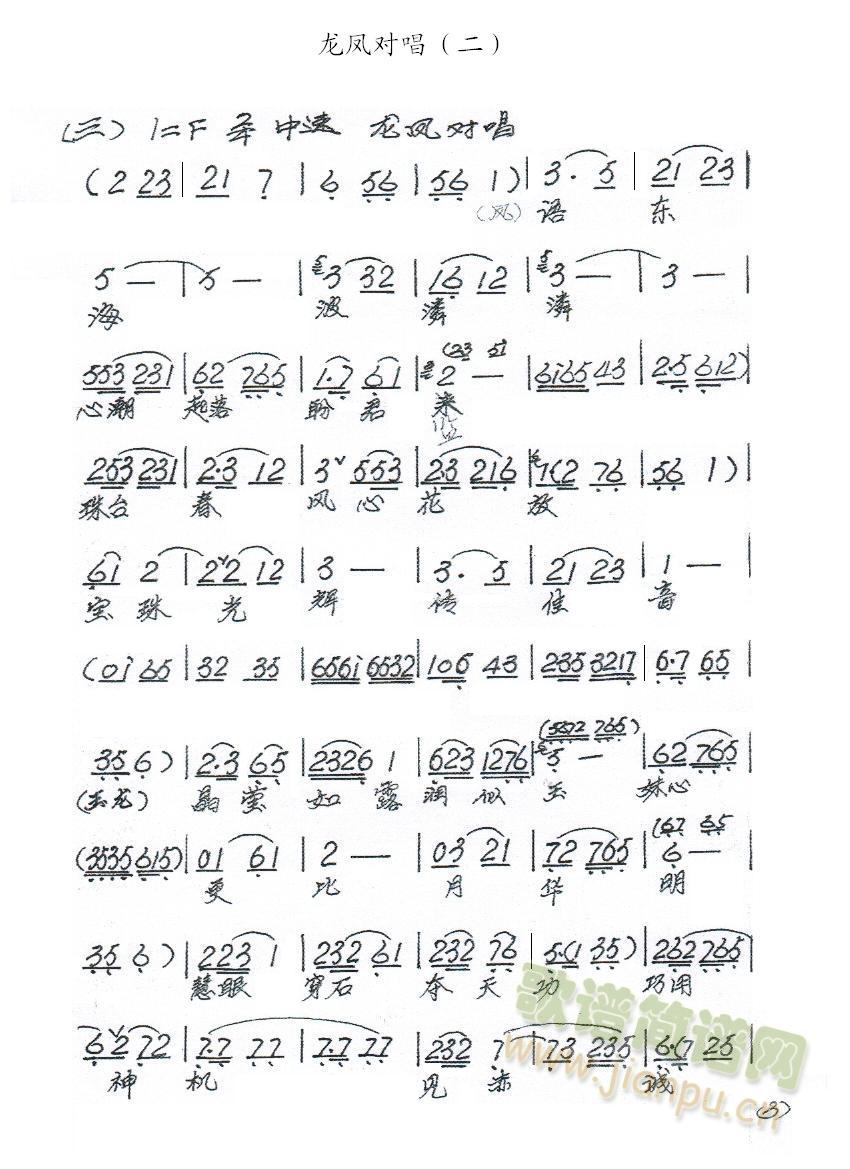 龙凤对唱（二）
（三）1=F 中速 龙凤对唱
(2 23 | 21 7 | 6 56 | 56 1) | 3· 5 | 21 23 |
（凤） 语 东
5 — | 5 — | 3 32 | 16 12 | 3 — | 3 — |
海 波 粼 粼
553 231 | 62 765 | 1·7 61 | 2 — | 6i65 43 | 2·5 612) |
心潮 起落 盼 君 来
253 231 | 2·3 12 | 3 553 | 2·3 216 | 1(2 76 | 56 1) |
珠台 春 风 心 花 放
61 2 | 2 2 12 | 3 — | 3· 5 | 21 23 | 1 — |
宝 珠 光 辉 传 佳 音
(0i 65 | 32 35 | 656i 6532 | 106 43 | 235 3217 | 6·7 65 |
35 6) | 2·3 65 | 2326 1 | 623 1276 | 5 — | 62 765 |
（玉龙） 晶 莹 如 露 润 似 玉 妹心
(3535 615) | 01 61 | 2 — | 03 21 | 72 765 | 6 — |
更 比 月 华 明
35 6) | 223 1 | 232 61 | 232 76 | 5·(1 35) | 262 765 |
慧眼 穿石 夺 天 功 巧用
62 72 | 7·7 77 | 7·7 77 | 232 7 | 73 235 | 6·(7 25 |
神 机 见 赤 诚
歌谱简谱网
www.jianpu.cn
(3)